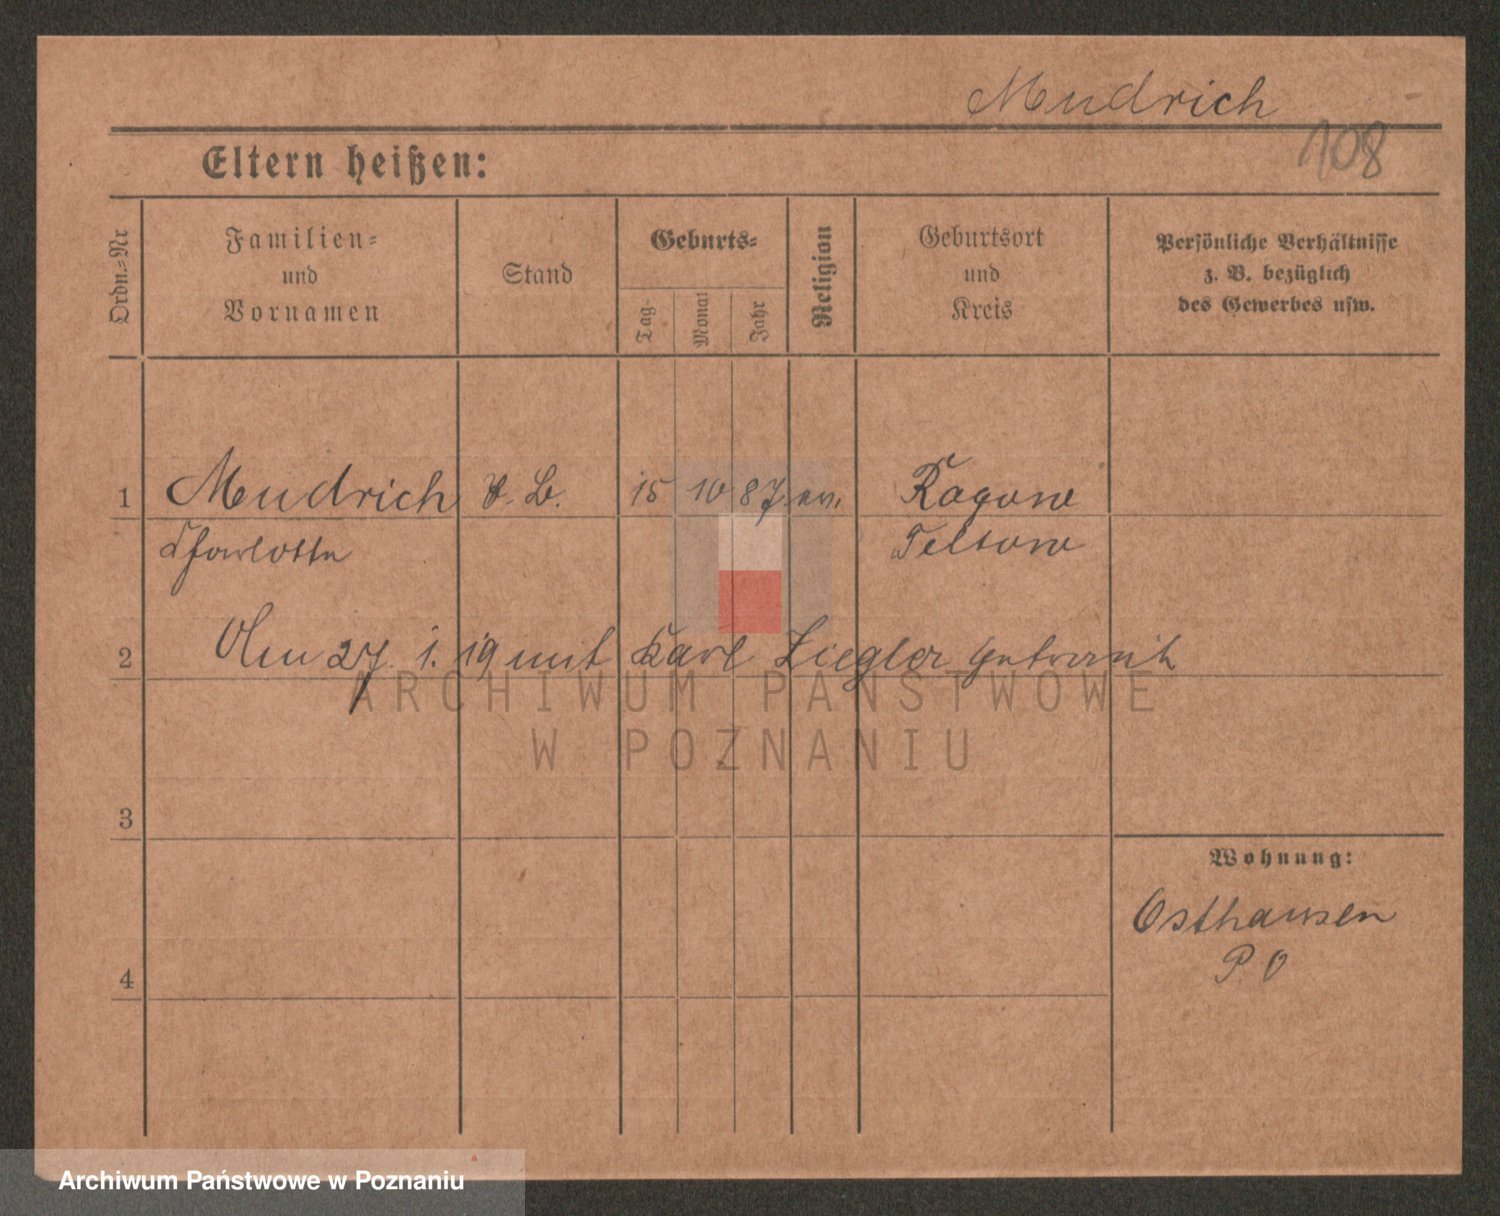 Mudrich
108
Eltern heißen:
Ordn.-Nr
Familien-
und
Vornamen
Stand
Geburts-
Tag
Monat
Jahr
Religion
Geburtsort
und
Kreis
Persönliche Verhältnisse
z. B. bezüglich
des Gewerbes usw.
1 Mudrich 15 10 87. ev. Ragow
Charlotte Teltow
2 Am 27. 1. 19 mit Karl Ziegler getraut
3
4
Wohnung:
Osthausen
P. O
ARCHIWUM PAŃSTWOWE
W POZNANIU
Archiwum Państwowe w Poznaniu